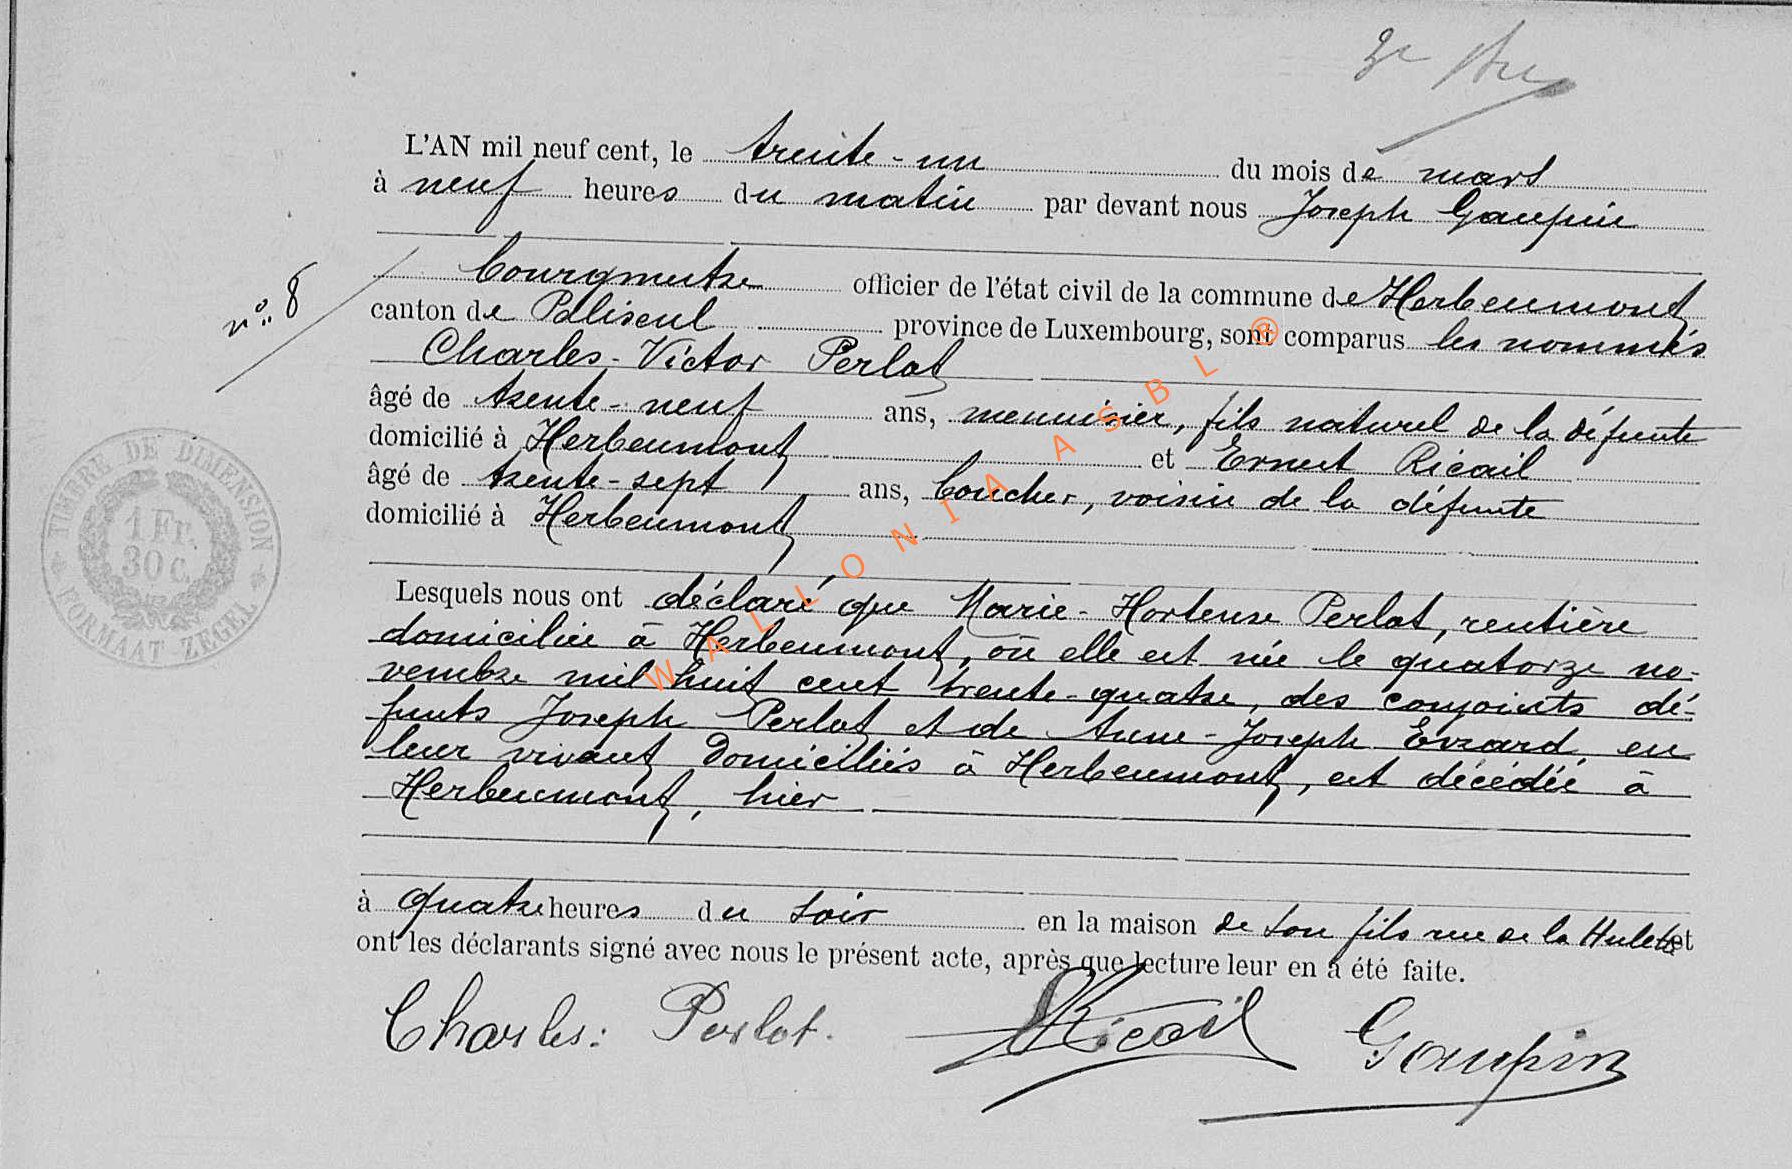 L'AN mil neuf cent, le trente-un du mois de mars
à neuf heures du matin par devant nous Joseph Goupin
bourgmestre officier de l'état civil de la commune de Herbeumont
n° 8
canton de Paliseul province de Luxembourg, sont comparus les nommés
Charles-Victor Perlot
âgé de trente-neuf ans, menuisier, fils naturel de la défunte
domicilié à Herbeumont et Ernest Ricail
âgé de trente-sept ans, boucher, voisin de la défunte
domicilié à Herbeumont
TIMBRE DE DIMENSION
1 Fr.
30 C.
FORMAAT ZEGEL
Lesquels nous ont déclaré que Marie-Hortense Perlot, rentière
domiciliée à Herbeumont, où elle est née le quatorze no-
vembre mil huit cent trente-quatre, des conjoints dé-
funts Joseph Perlot et de Anne-Joseph Evrard en
leur vivant domiciliés à Herbeumont, est décédée à
Herbeumont, hier
à quatre heures du soir en la maison de son fils rue de la Hulette et
ont les déclarants signé avec nous le présent acte, après que lecture leur en a été faite.
Charles: Perlot. Ricail Goupin
WALLONIA ASBL ®